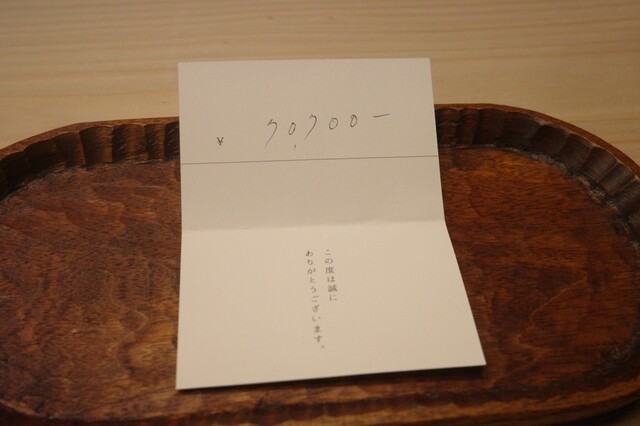 ¥ 70,700-
この度は誠に
ありがとうございます。